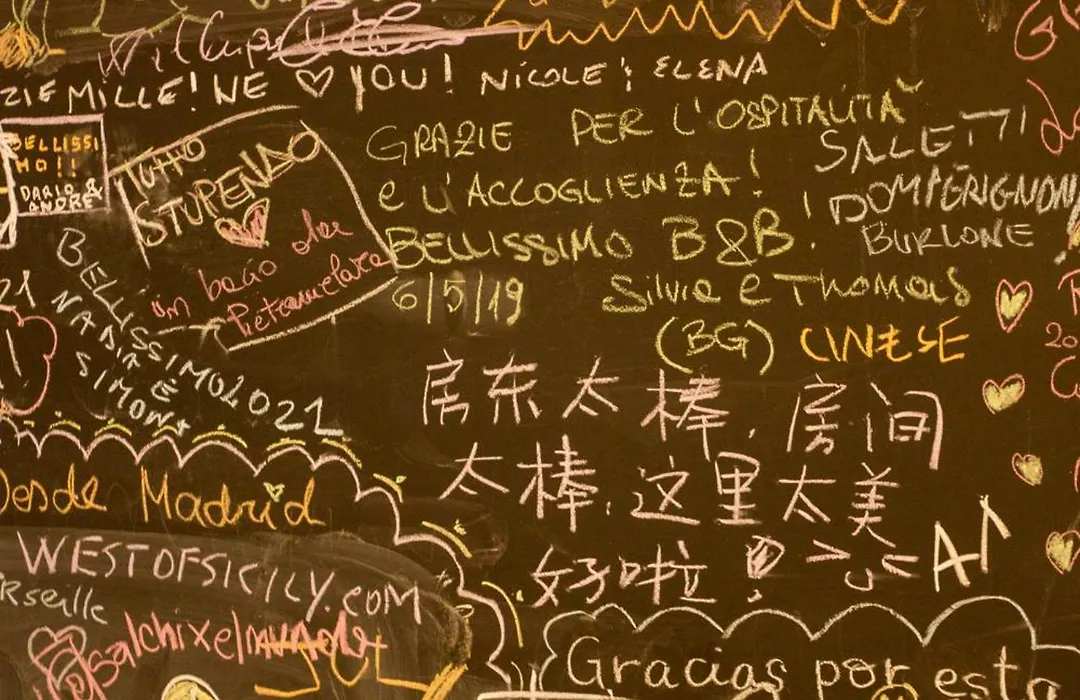 ZIE MILLE! WE ♡ YOU! NICOLE & ELENA
BELLISSI
MO!!
DARIO &
ANDRE
TUTTO
STUPENDO
un bacio da
GRAZIE PER L'OSPITALITÀ
e L'ACCOGLIENZA!
BELLISSIMO B&B!
6/5/19 Silvia e Thomas
(BG) CINESE
SALETTI
DOMPERIGNON
BURLONE
BELLISSIMO 2021
NADIA E
SIMONA
21
房东太棒,房间
太棒,这里太美
好啦!
Desde Madrid
WESTOFSICILY.COM
rseille
salchixelmundo
Gracias por esta